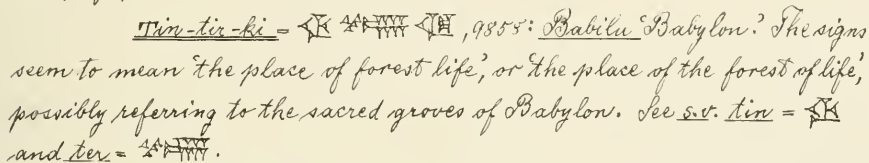 Tin-tir-ki = 𒁷 𒌁 𒆠, 9855: Babilu 'Babylon.' The signs
seem to mean 'the place of forest life', or 'the place of the forest of life',
possibly referring to the sacred groves of Babylon. See s.v. tin = 𒁷
and ter = 𒌁.